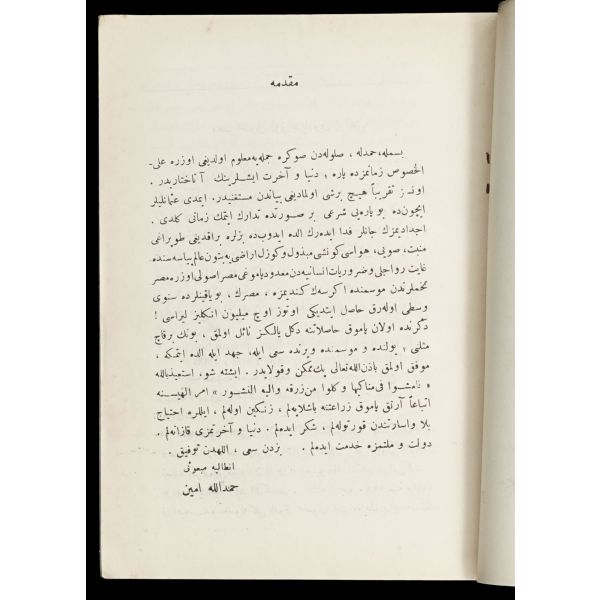 مقدمه
بسمله، حمدله ، صلوله‌دن صوكره جمله‌یه معلوم اولدیغی اوزره علی-
الخصوص زمانمزده پاره ؛ دنیا و آخرت ایشلرینك آناختاریدر .
اونسز تقریباً هیچ برشی اولمادیغی بیاندن مستغنیدر. ایمدی عثمانلیلر
ایچون‌ده بو پاره‌یی شرعی بر صورتده تدارك ایتمك زمانی كلدی .
اجدادیمزك جانلر فدا ایده‌رك الده ایدوب‌ده بزلره براقدیغی طوپراغی
منبت، صویی، هواسی كونشی مبذول و كوزل اراضی‌یه بتون عالم پیاسه‌سنده
غایت رواجلی و ضروریات انسانیه‌دن معدود پاموغی مصر اصولی اوزره مصر
تخملرندن موسمنده اكرسه‌ك كندیمزه ، مصرك ، بو یاقینلرده سنوی
وسطی اوله‌رق حاصل ایتدیكی اوتوز اوچ میلیون انكلیز لیراسی !
دكرنده اولان پاموق حاصلاتنه دكل یالكز نائل اولمق ، بونك برقاچ
مثلنی ؛ یولنده و موسمنده ویرنده سعی ایله، جهد ایله الده ایتمكه ،
موفق اولمق باذن‌الله‌تعالی پك ممكن و قولایدر. ایشته شو، استعیذبالله
« فامشوا فی مناكبها و كلوا من رزقه والیه النشور » امر الهیسنه
اتباعاً آرتق پاموق زراعتنه باشلایه‌لم ، زنكین اوله‌لم ، ایللره احتیاج
بلا و اسارتندن قورتوله‌لم ، شكر ایده‌لم . دنیا و آخرتمزی قازانه‌لم .
دولت و ملتمزه خدمت ایده‌لم . بزدن سعی ، اللهدن توفیق .
انطالیه مبعوثی
حمدالله امین